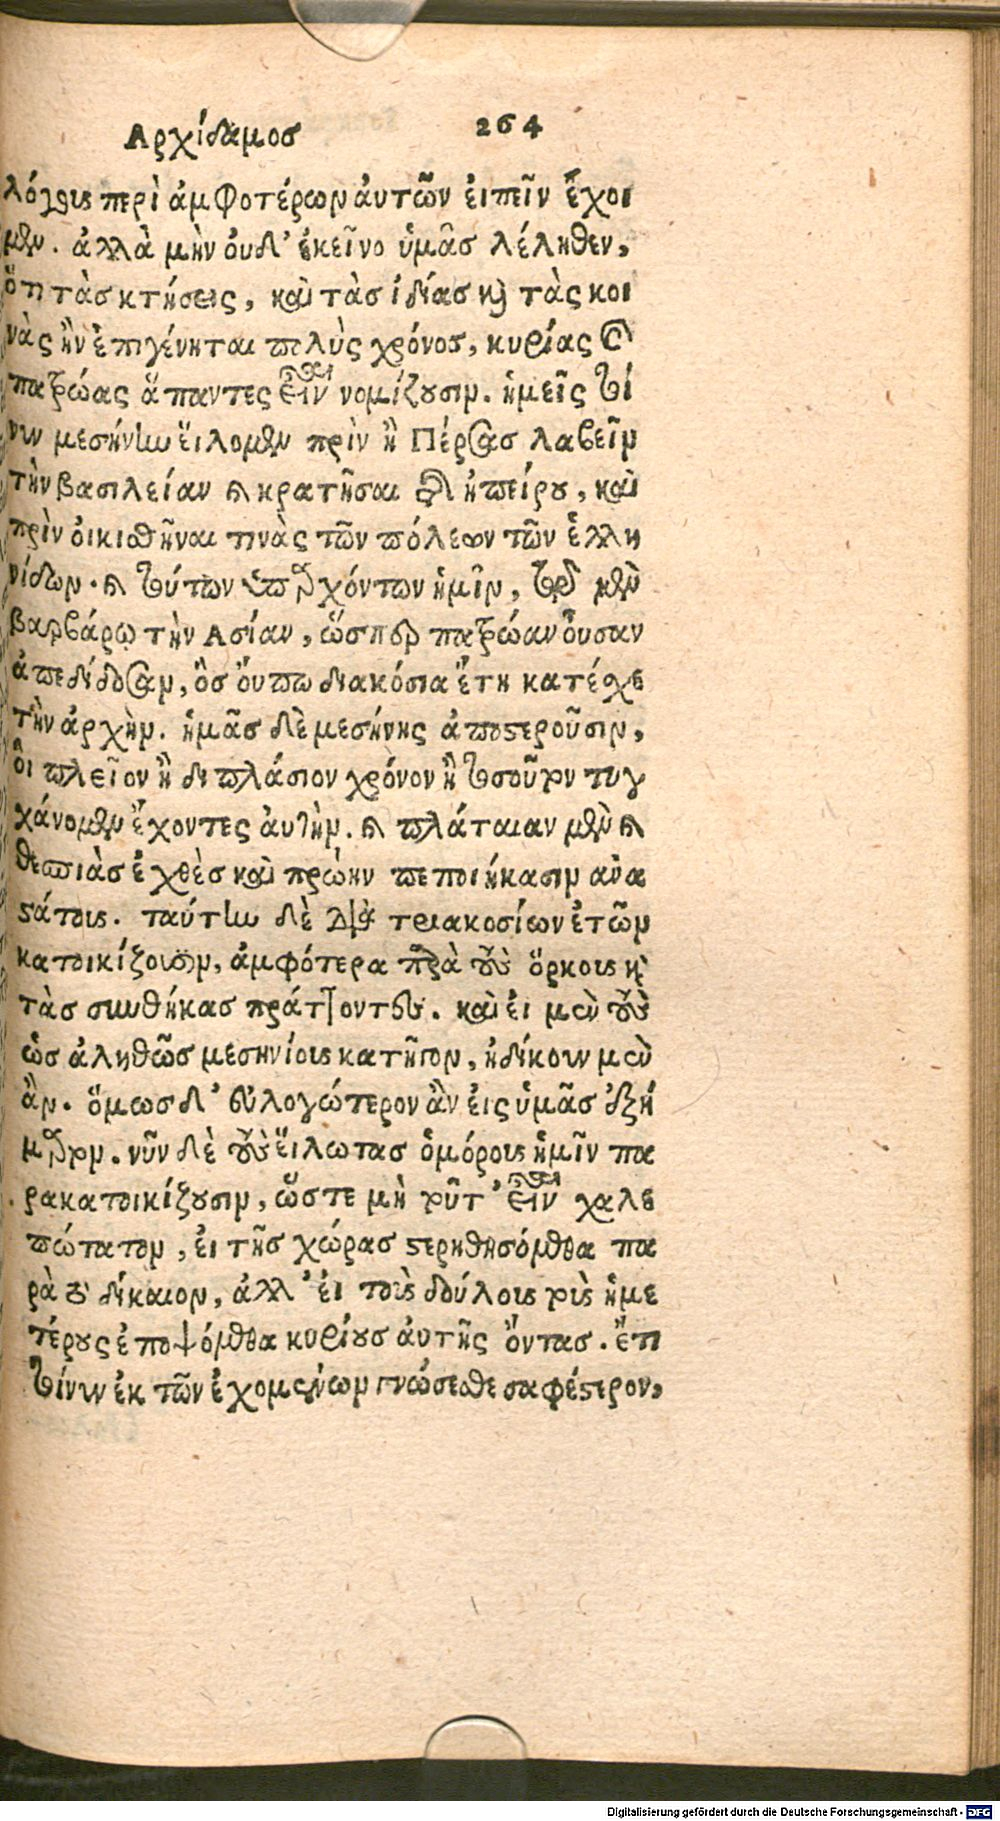 Αρχίδαμοσ 264
λόγοις περὶ ἀμφοτέρων ἀυτῶν ἐιπεῖν ἔχοι
μεν. ἀλλὰ μὴν ὀυδ' ἐκεῖνο ὑμᾶσ λέληθεν,
ὅτι τὰσ κτήσεις, καὶ τὰσ ἰδίασ καὶ τὰς κοι
νὰς ἢν ἐπιγένηται πολὺς χρόνοσ, κυρίας καὶ
πατρώας ἅπαντες εἶναι νομίζουσιν. ἡμεῖς τοί
νυν μεσήνην ἕιλομεν πρὶν ἢ Πέρσασ λαβεῖν
τὴν βασιλείαν καὶ κρατῆσαι τῆς ἠπείρου, καὶ
πρὶν ὀικισθῆναι τινὰς τῶν πόλεων τῶν ἑλλη
νίδων. καὶ τούτων ὑπαρχόντων ἡμῖν, τῷ μὲν
βαρβάρῳ τὴν Ασίαν, ὥσπερ πατρώαν ὀυσαν
ἀπεδίδοσαν, ὃσ ὄυπω διακόσια ἔτη κατέχει
τὴν ἀρχὴν. ἡμᾶσ δὲ μεσήνης ἀποστεροῦσιν,
ὃι πλεῖον ἢ διπλάσιον χρόνον ἢ τοσοῦτον τυγ
χάνομεν ἔχοντες ἀυτὴν. καὶ πλάταιαν μὲν καὶ
θεσπιὰσ ἐχθὲσ καὶ πρώην πεποιήκασιν ἀνα
στάτους. ταύτην δὲ διὰ τριακοσίων ἐτῶν
κατοικίζουσιν, ἀμφότερα παρὰ τοὺς ὅρκους καὶ
τὰσ συνθήκασ πράττοντες. καὶ ἐι μὲν τοὺς
ὡσ ἀληθῶσ μεσηνίους κατῆγον, ἠδίκουν μὲν
ἂν. ὅμωσ δ' ἐυλογώτερον ἂν ἐις ὑμᾶσ ἐξή
μαρτον. νῦν δὲ τοὺς ἕιλωτασ ὁμόρους ἡμῖν πα
ρακατοικίζουσιν, ὥστε μὴ τοῦτ' εἶναι χαλε
πώτατον, ἐι τῆσ χώρασ στερηθησόμεθα πα
ρὰ τὸ δίκαιον, ἀλλ' ἐι τοὺς δούλους τοὺς ἡμε
τέρους ἐποψόμεθα κυρίουσ ἀυτῆς ὄντασ. ἔτι
τοίνυν ἐκ τῶν ἐχομένων γνώσεσθε σαφέστερον,
Digitalisierung gefördert durch die Deutsche Forschungsgemeinschaft - DFG